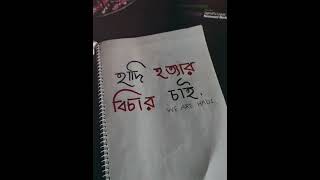 হাদি হত্যার
বিচার চাই.
WE ARE HADI.